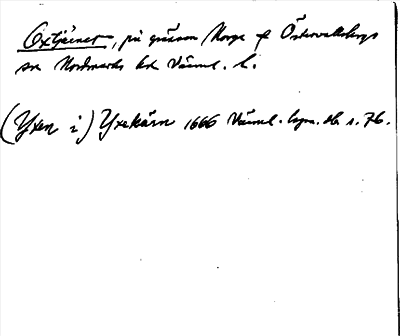 Oxtjärnet, på gränsen Norge o Östervallskogs
sn Nordmarks hd Värml. l.
(Yxen i) Yxekärn 1666 Värml. lagsn. db s. 76.